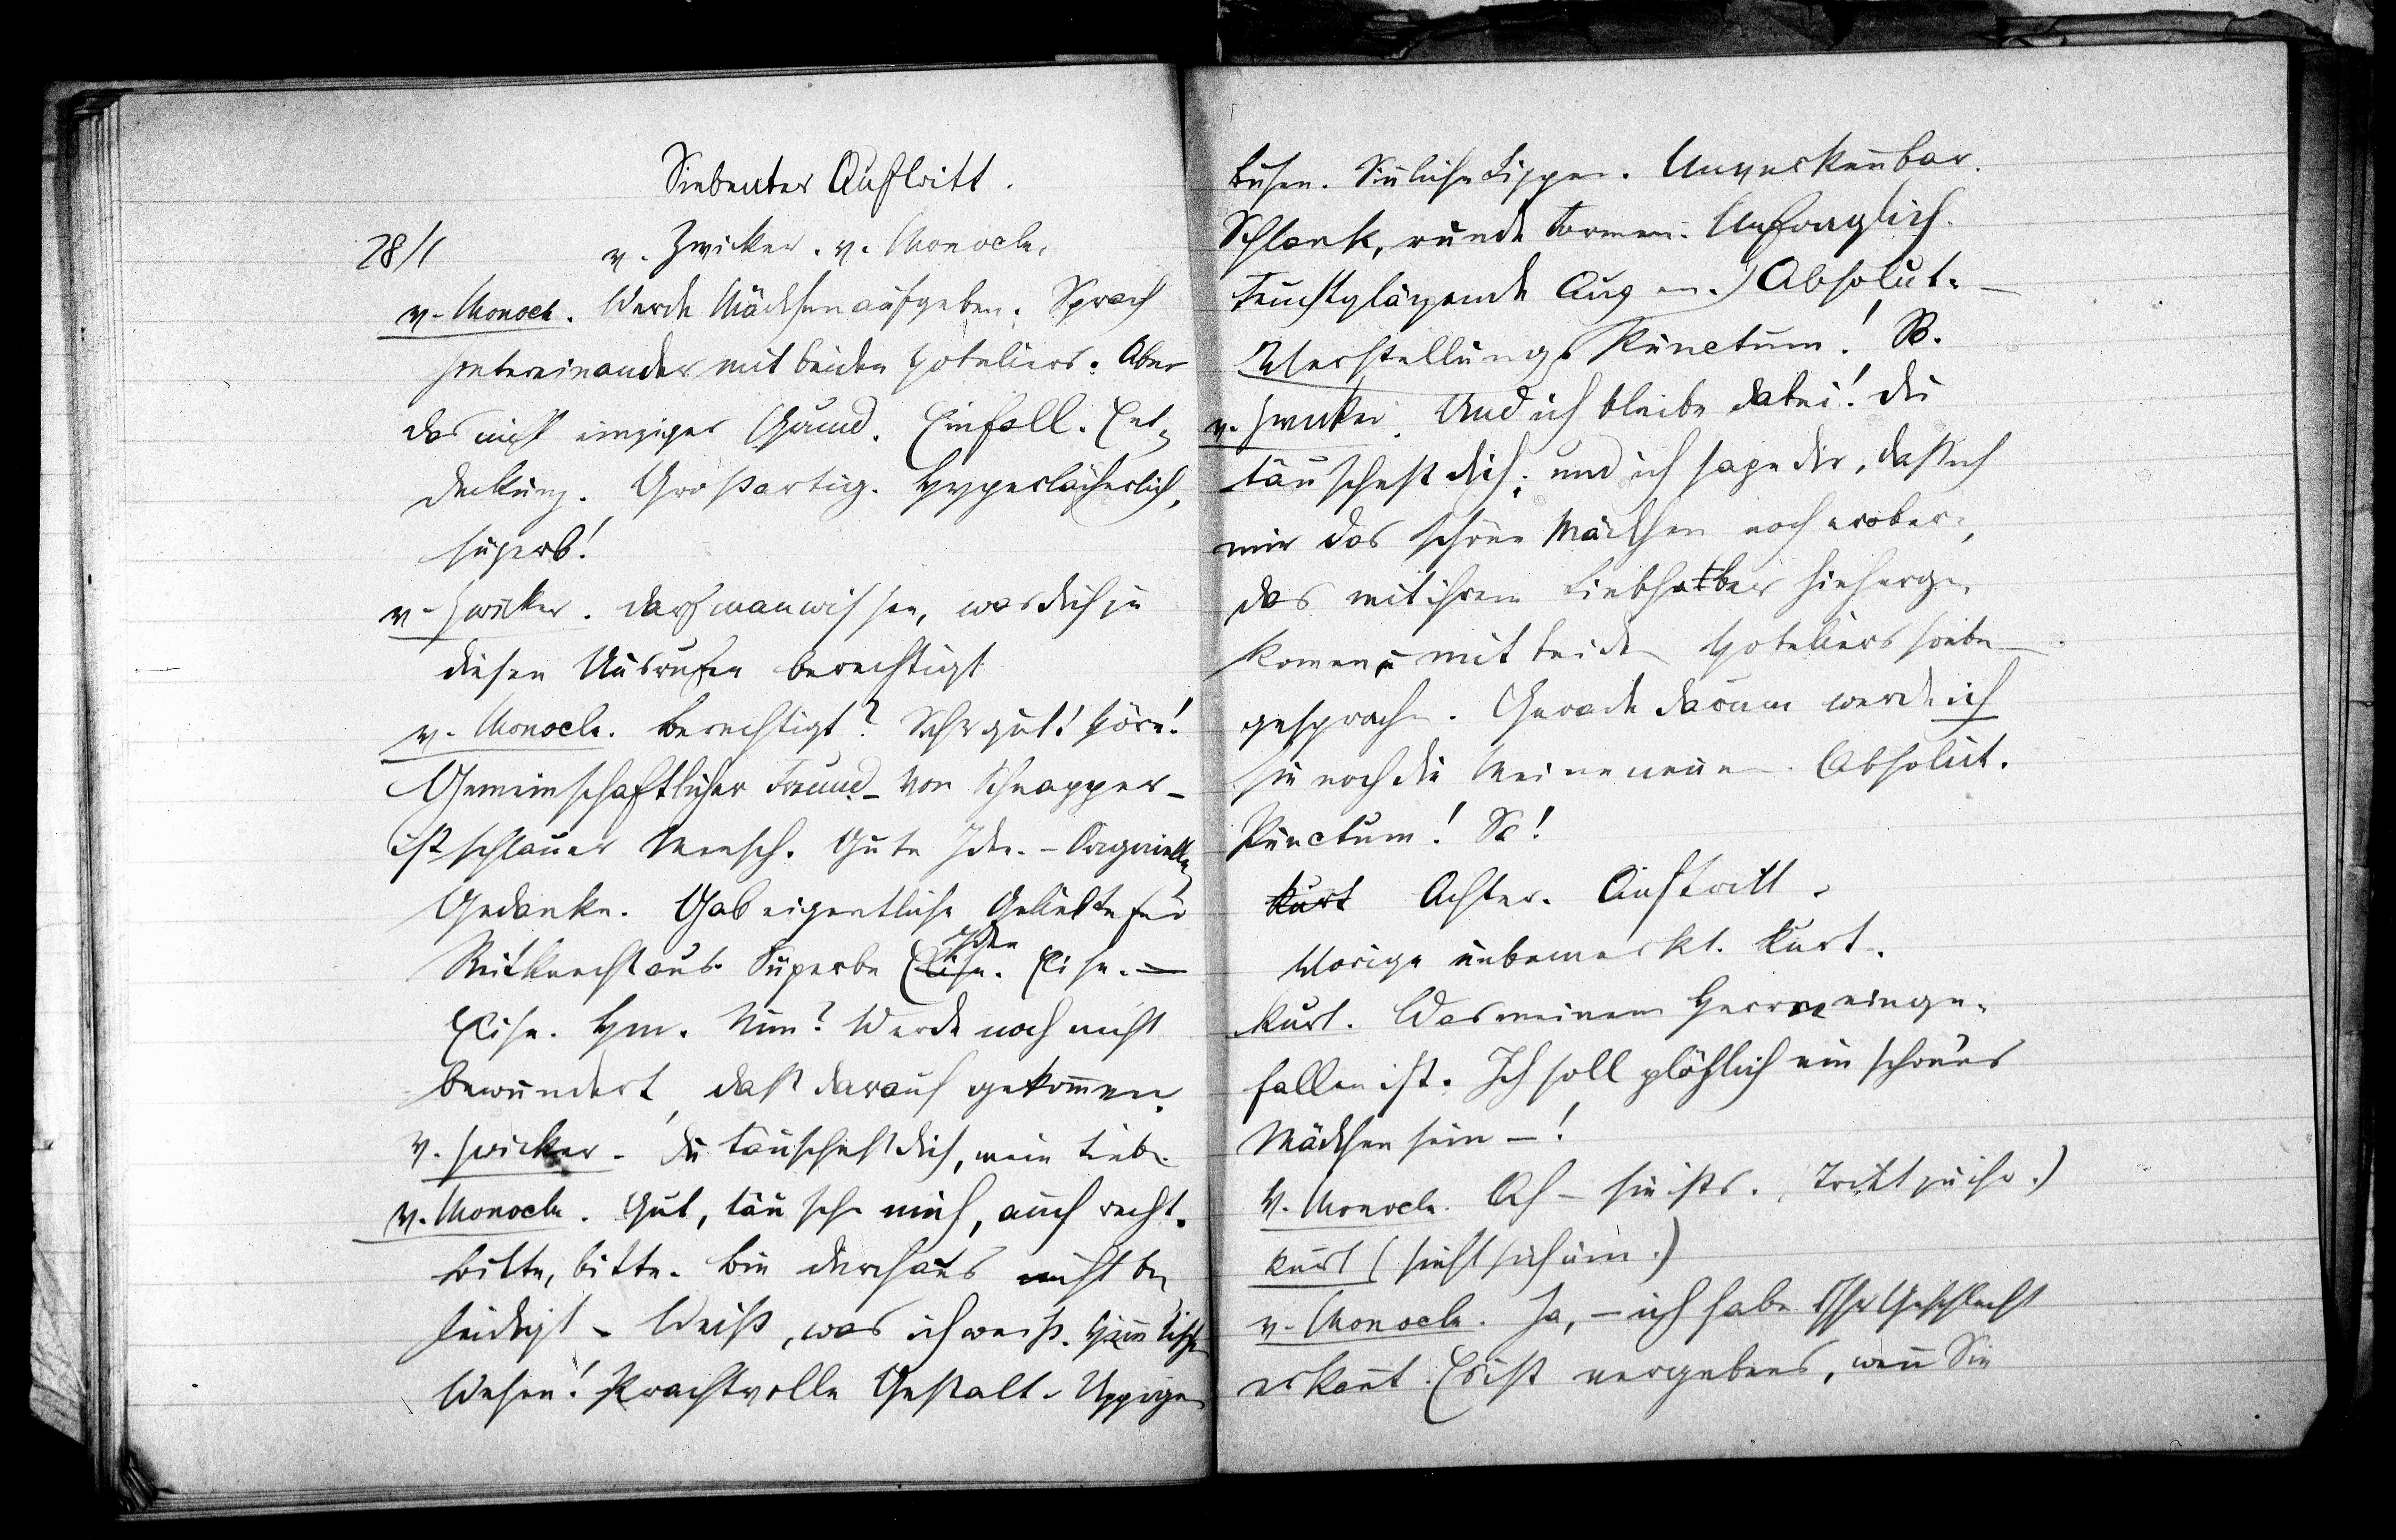 Siebenter Auftritt.
28/1 v. Zwicker. v. Monocle.
v. Monocle. Werde Mädchen aufgeben. Sprach
hintereinander mit beiden Hoteliers. Aber
das nicht einziger Grund. Einfall. Ent-
deckung. Großartig. Hyperlächerlich,
superb!
v. Zwicker. Darf man wissen, was dich zu
diesen Ausrufen berechtigt
v. Monocle. Berechtigt? Sehr gut! Höre!
Gemeinschaftlicher Freund – von Schnapper –
ist schlauer Mensch. Gute Idee. – Origineller
Gedanke. Gab eigentliche Geliebte für
Reitknecht aus. Superbe Elise. Idee Elise. –
Elise. Hm. Nun? Werde noch nicht
bewundert, daß darauf gekom̄en.
v. Zwicker. Du täuschest dich, mein Lieber
v. Monocle. Gut, täusche mich, auch recht.
bitte, bitte. Bin durchaus nicht be-
leidigt. Weiß, was ich weiß. Him̄lisches
Wesen! Prachtvolle Gestalt. Üppiger
Busen. Sin̄liche Lippen. Unverken̄bar.
Schlank, runde Formen. Unfraglich.
Feuchtglänzende Augen.) Absolut. –
Verstellung. Punctum! So.
v. Zwicker. Und ich bleibe dabei! Du
täuschest dich; und ich sage dir, daß ich
mir das schöne Mädchen noch erobere,
das mit ihrem Liebhaber hieherge-
kom̄en u mit beiden Hoteliers
gesprochen. Gerade darum werde ich
sie noch die Meine nen̄en. Absolut.
Punctum! So!
Kurt Achter. Auftritt.
Vorige unbemerkt. Kurt.
Kurt. Was meinem Herrn einge-
fallen ist. Ich soll plötzlich ein schönes
Mädchen sein –!
v. Monocle. Ah – sie ists. (Tritt zu ihr.)
Kurt (sieht sich um.)
v. Monocle. Ja, – ich habe Ihr Geschlecht
erkan̄t. Es ist vergebens, wen̄ Sie